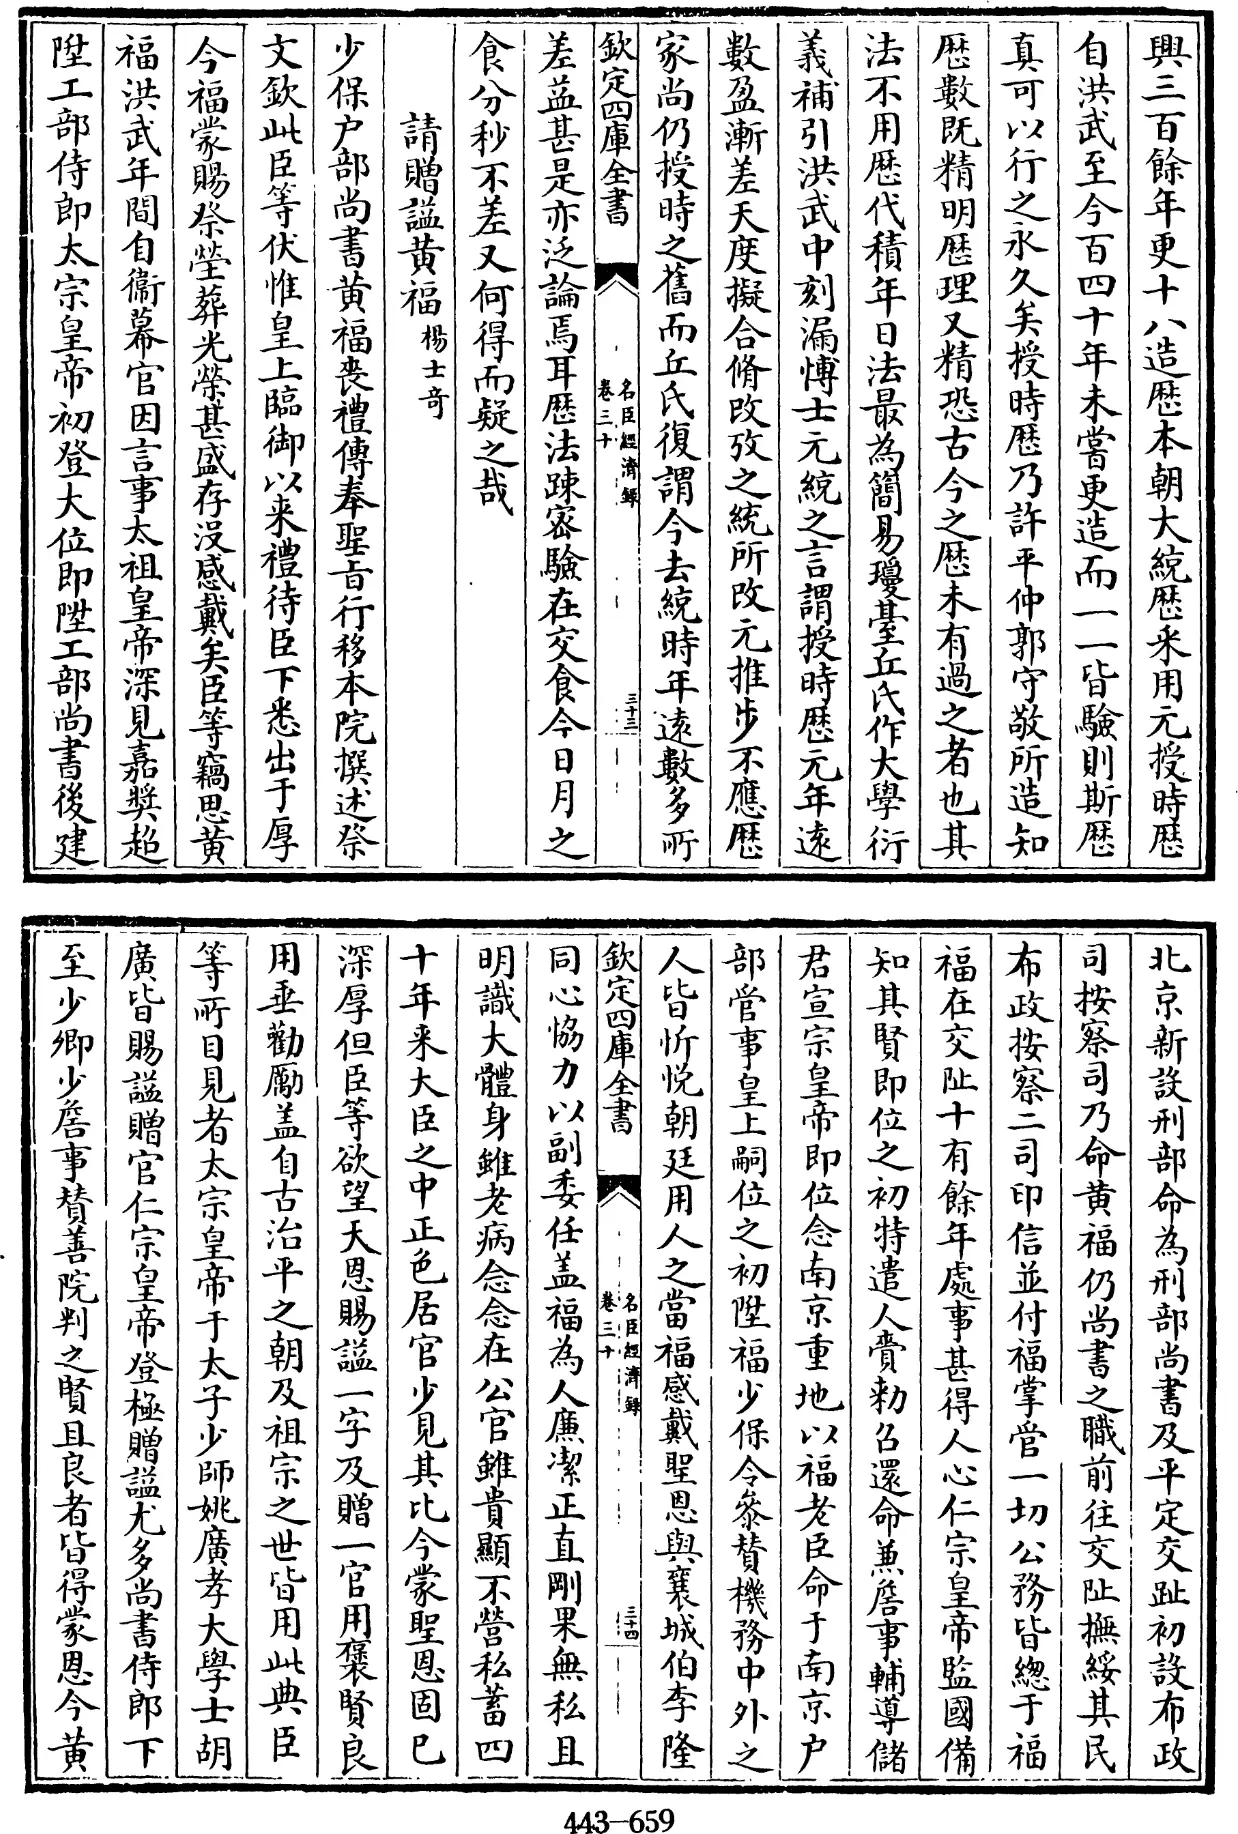 興三百餘年更十八造歴本朝大統歴采用元授時歴
自洪武至今百四十年未嘗更造而一一皆驗則斯歴
真可以行之永久矣授時歴乃許平仲郭守敬所造知
歴數既精明歴理又精恐古今之歴未有過之者也其
法不用歴代積年日法最為簡易瓊臺丘氏作大學衍
義補引洪武中刻漏博士元統之言謂授時歴元年遠
數盈漸差天度擬合脩改攷之統所改元推步不應歴
家尚仍授時之舊而丘氏復謂今去統時年遠數多所
欽定四庫全書
名臣經濟録
卷三十
三十三
差益甚是亦泛論焉耳歴法踈宻驗在交食今日月之
食分秒不差又何得而疑之哉
請贈謚黄福楊士奇
少保户部尚書黄福喪禮傳奉聖㫖行移本院撰述祭
文欽此臣等伏惟皇上臨御以来禮待臣下悉出于厚
今福蒙賜祭塋葬光榮甚盛存没感戴矣臣等竊思黄
福洪武年間自衞幕官因言事太祖皇帝深見嘉奬超
陞工部侍郎太宗皇帝初登大位即陞工部尚書後建
北京新設刑部命為刑部尚書及平定交趾初設布政
司按察司乃命黄福仍尚書之職前往交阯撫綏其民
布政按察二司印信並付福掌管一切公務皆總于福
福在交阯十有餘年處事甚得人心仁宗皇帝監國備
知其賢即位之初特遣人賫勑召還命兼詹事輔導儲
君宣宗皇帝即位念南京重地以福老臣命于南京户
部管事皇上嗣位之初陞福少保令叅賛機務中外之
人皆忻悦朝廷用人之當福感戴聖恩與襄城伯李隆
欽定四庫全書
名臣經濟録
卷三十
三十四
同心協力以副委任盖福為人廉潔正直剛果無私且
明識大體身雖老病念念在公官雖貴顯不營私蓄四
十年来大臣之中正色居官少見其比今蒙聖恩固已
深厚但臣等欲望天恩賜謚一字及贈一官用襃賢良
用垂勸勵盖自古治平之朝及祖宗之世皆用此典臣
等所目見者太宗皇帝于太子少師姚廣孝大學士胡
廣皆賜謚贈官仁宗皇帝登極贈謚尤多尚書侍郎下
至少卿少詹事賛善院判之賢且良者皆得蒙恩今黄
443—659